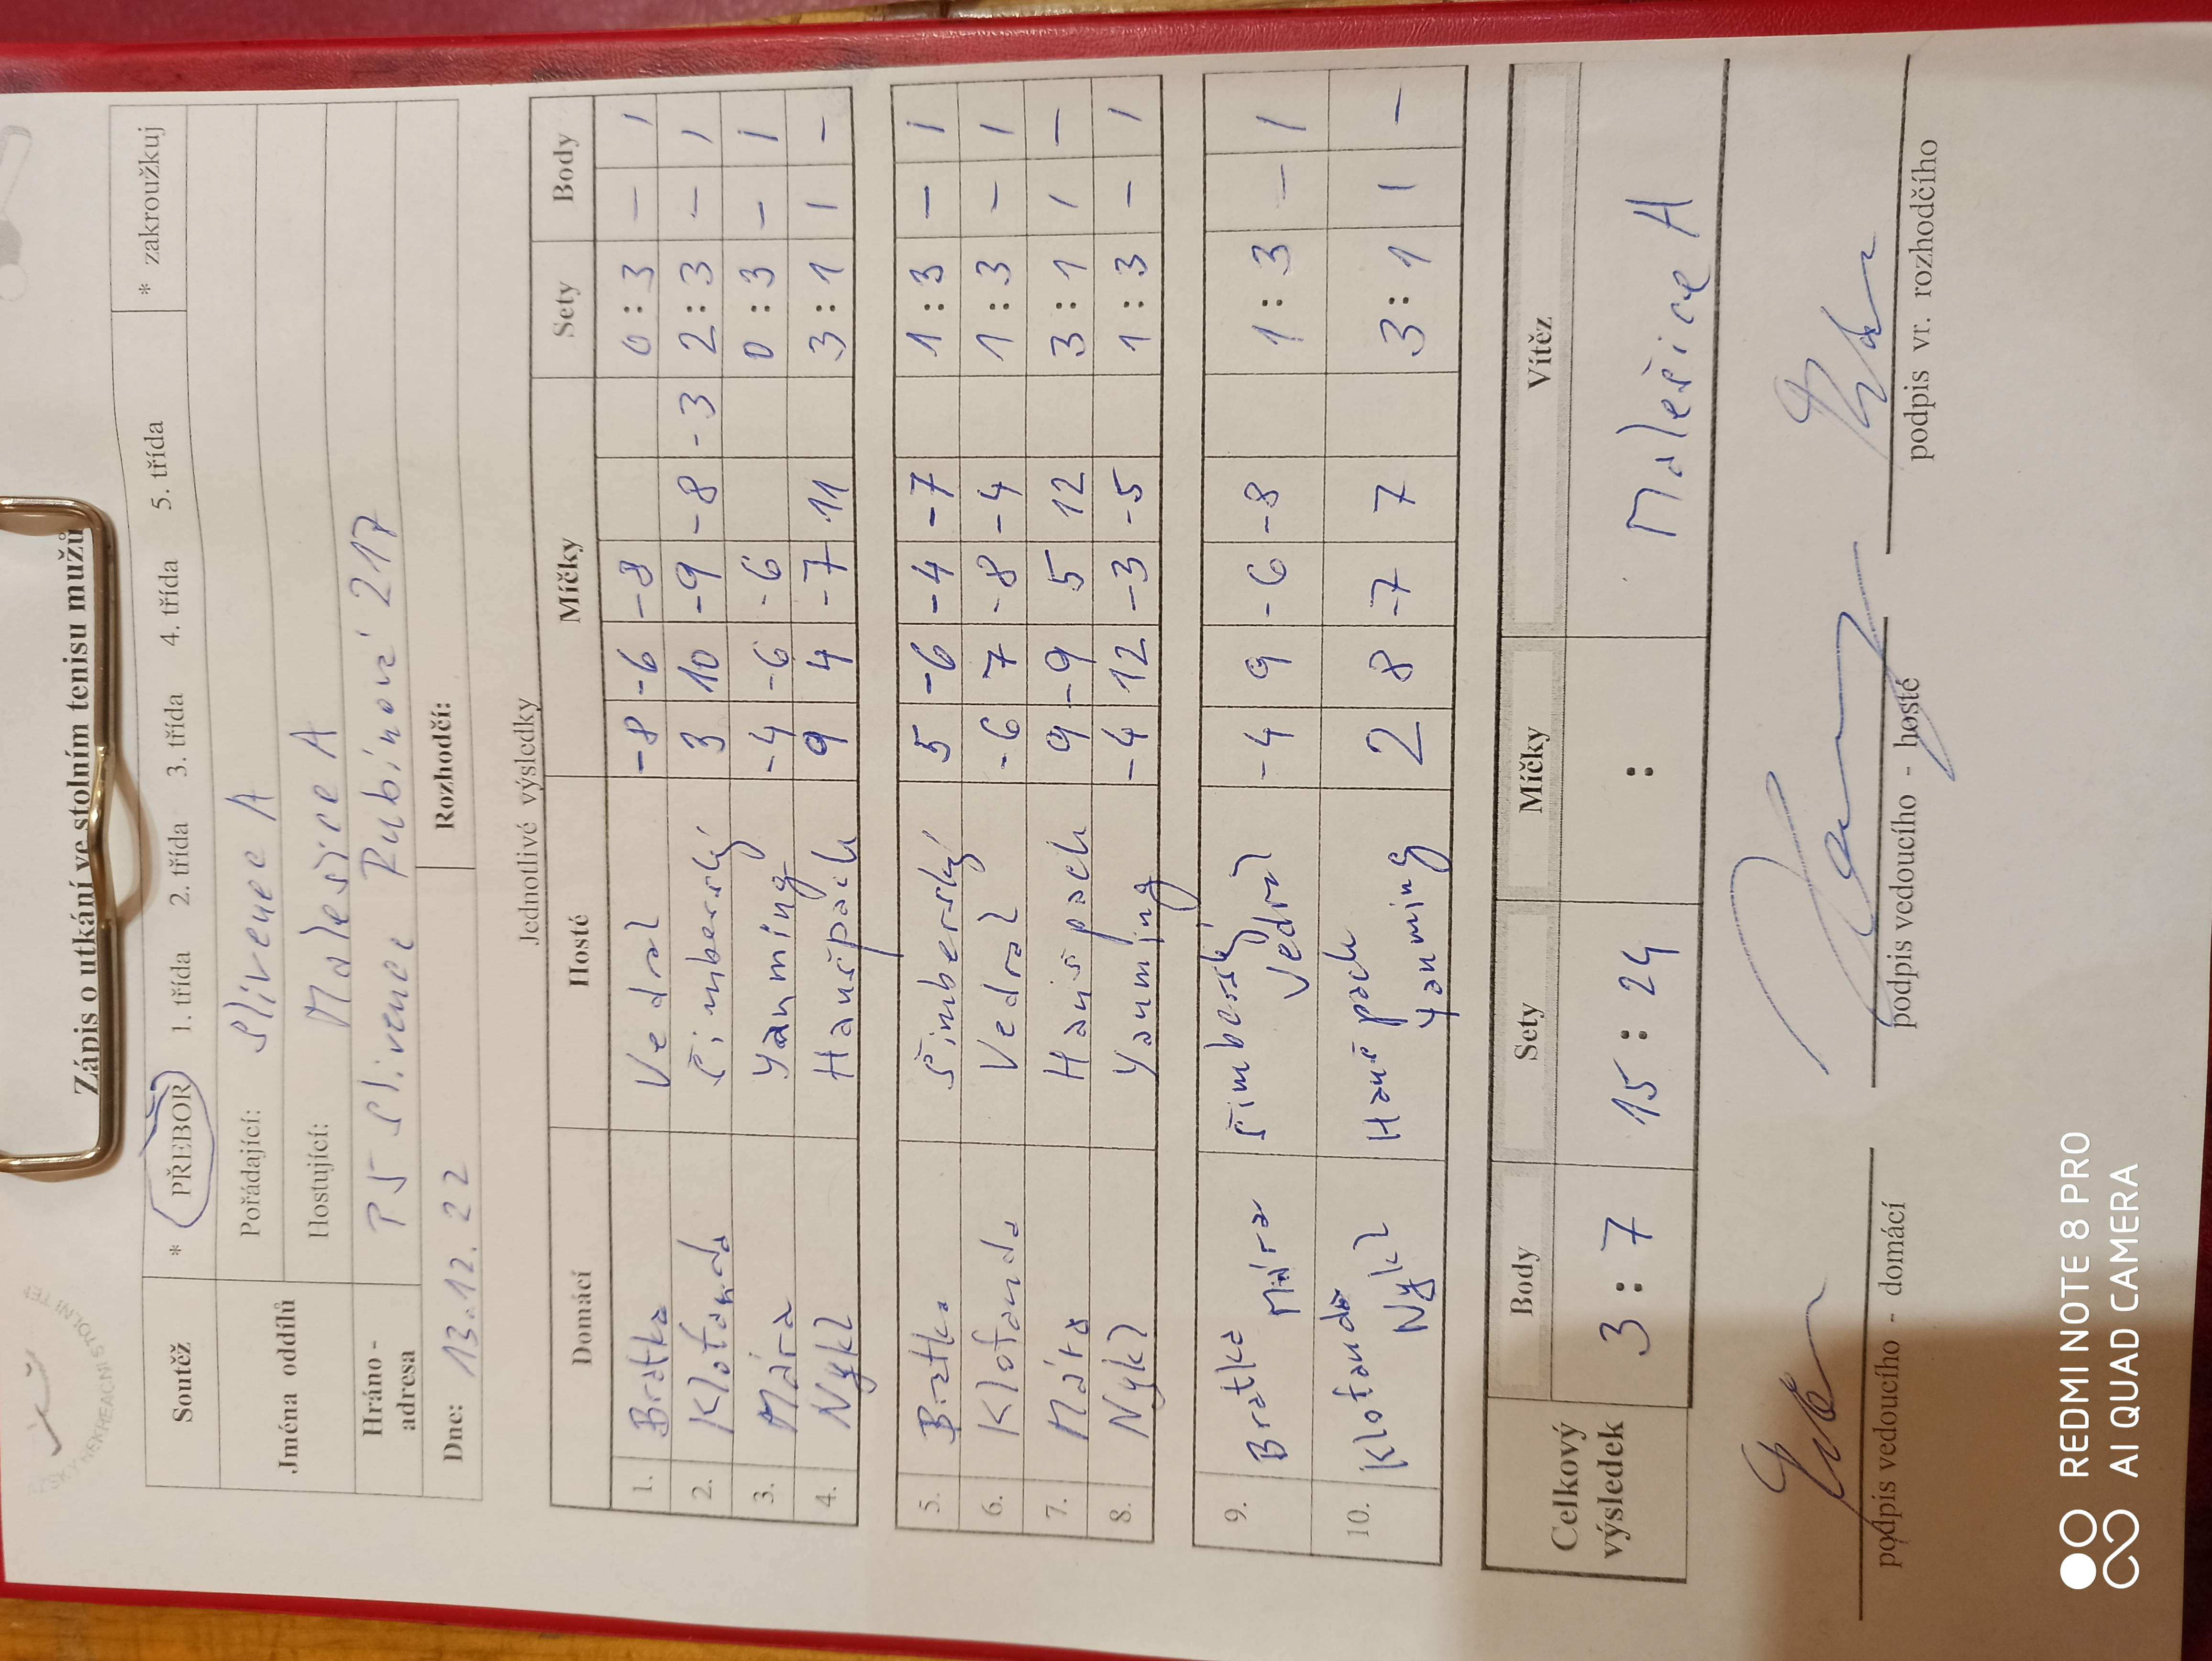 Zápis o utkání ve stolním tenisu mužů
Soutěž * PŘEBOR 1. třída 2. třída 3. třída 4. třída 5. třída * zakroužkuj
Jména oddílů Pořádající: Slivenec A
Hostující: Malešice A
Hráno - adresa P5 Slivenec Rubínová 217
Dne: 13.12.22 Rozhodčí:
Jednotlivé výsledky
Domácí Hosté Míčky Sety Body
1. Bratka Vedral -8 -6 -8 0 : 3 – 1
2. Klofanda Šimberský 3 10 -9 -8 -3 2 : 3 – 1
3. Mára Yanming -4 -6 -6 0 : 3 – 1
4. Nykl Hanšpach 9 4 -7 11 3 : 1 1 –
5. Bratka Šimberský 5 -6 -4 -7 1 : 3 – 1
6. Klofanda Vedral -6 7 -8 -4 1 : 3 – 1
7. Mára Hanšpach 9 -9 5 12 3 : 1 1 –
8. Nykl Yanming -4 12 -3 -5 1 : 3 – 1
9. Bratka Mára Šimberský Vedral -4 9 -6 -8 1 : 3 – 1
10. Klofanda Nykl Hanšpach Yanming 2 8 -7 7 3 : 1 1 –
Celkový výsledek Body Sety Míčky Vítěz
3 : 7 15 : 24 : Malešice A
podpis vedoucího - domácí podpis vedoucího - hosté podpis vr. rozhodčího
REDMI NOTE 8 PRO
AI QUAD CAMERA